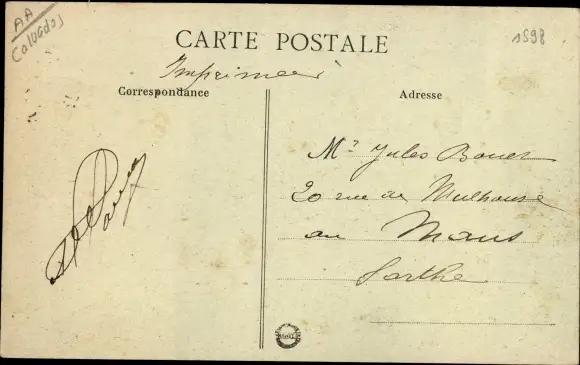 AA
Calvados
1898
CARTE POSTALE
Imprimeé
Correspondance
Adresse
Mr Jules Bouet
20 rue de Mulhouse
au Mans
Sarthe